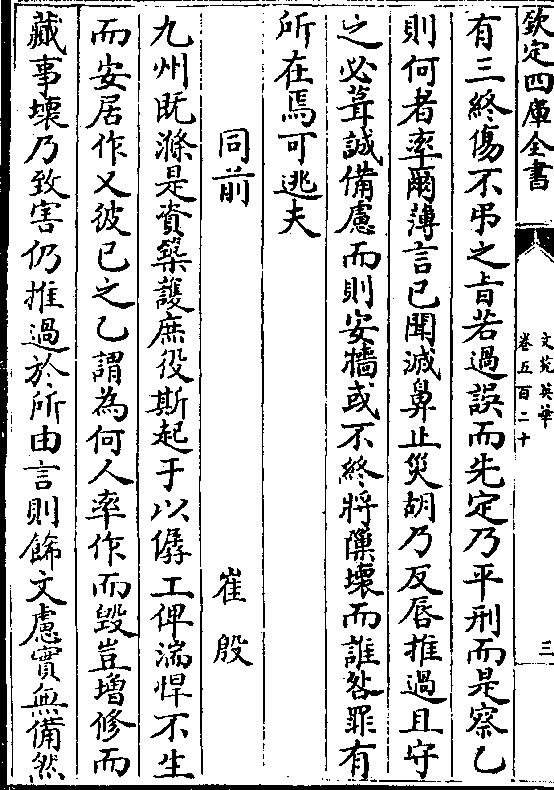 欽定四庫全書
文苑英華
卷五百二十
三
有三終傷不弔之㫖若過誤而先定乃平刑而是察乙
則何者率爾薄言已聞滅鼻止災胡乃反唇推過且守
之必葺誠備慮而則安牆或不終將隟壊而誰咎罪有
所在焉可逃夫
同前
崔殷
九州既滌是資築護庶役斯起于以僝工俾湍悍不生
而安居作乂彼已之乙謂為何人率作而毀豈増修而
蕆事壊乃致害仍推過於所由言則餙文慮實無備然